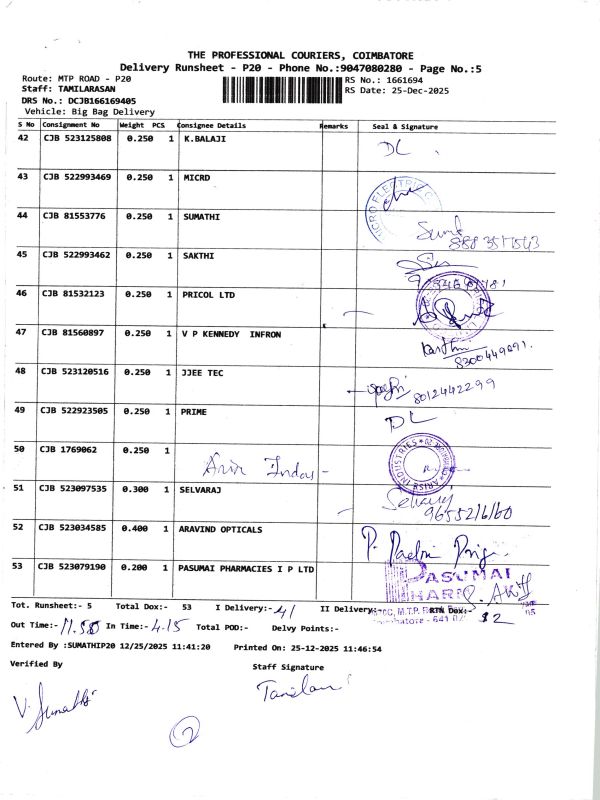 THE PROFESSIONAL COURIERS, COIMBATORE
Delivery Runsheet - P20 - Phone No.:9047080280 - Page No.:5
Route: MTP ROAD - P20
RS No.: 1661694
Staff: TAMILARASAN
RS Date: 25-Dec-2025
DRS No.: DCJB166169405
Vehicle: Big Bag Delivery
S No Consignment No Weight PCS Consignee Details Remarks Seal & Signature
42 CJB 523125808 0.250 1 K.BALAJI DL
43 CJB 522993469 0.250 1 MICRD
MICRO ELECTRIC
44 CJB 81553776 0.250 1 SUMATHI
45 CJB 522993462 0.250 1 SAKTHI
46 CJB 81532123 0.250 1 PRICOL LTD
47 CJB 81560897 0.250 1 V P KENNEDY INFRON Karthi
8300449091.
48 CJB 523120516 0.250 1 JJEE TEC 8012442299
49 CJB 522923505 0.250 1 PRIME DL
50 CJB 1769062 0.250 1
Arin Indus -
INDUSTRIES
51 CJB 523097535 0.300 1 SELVARAJ Selvaraj
9655216160
52 CJB 523034585 0.400 1 ARAVIND OPTICALS
53 CJB 523079190 0.200 1 PASUMAI PHARMACIES I P LTD PASUMAI
Tot. Runsheet:- 5 Total Dox:- 53 I Delivery:- 41 II Delivery: RTN Dox:- 12
Out Time:- 11.50 In Time:- 4.15 Total POD:- Delvy Points:-
Entered By :SUMATHIP20 12/25/2025 11:41:20 Printed On: 25-12-2025 11:46:54
Verified By Staff Signature
2